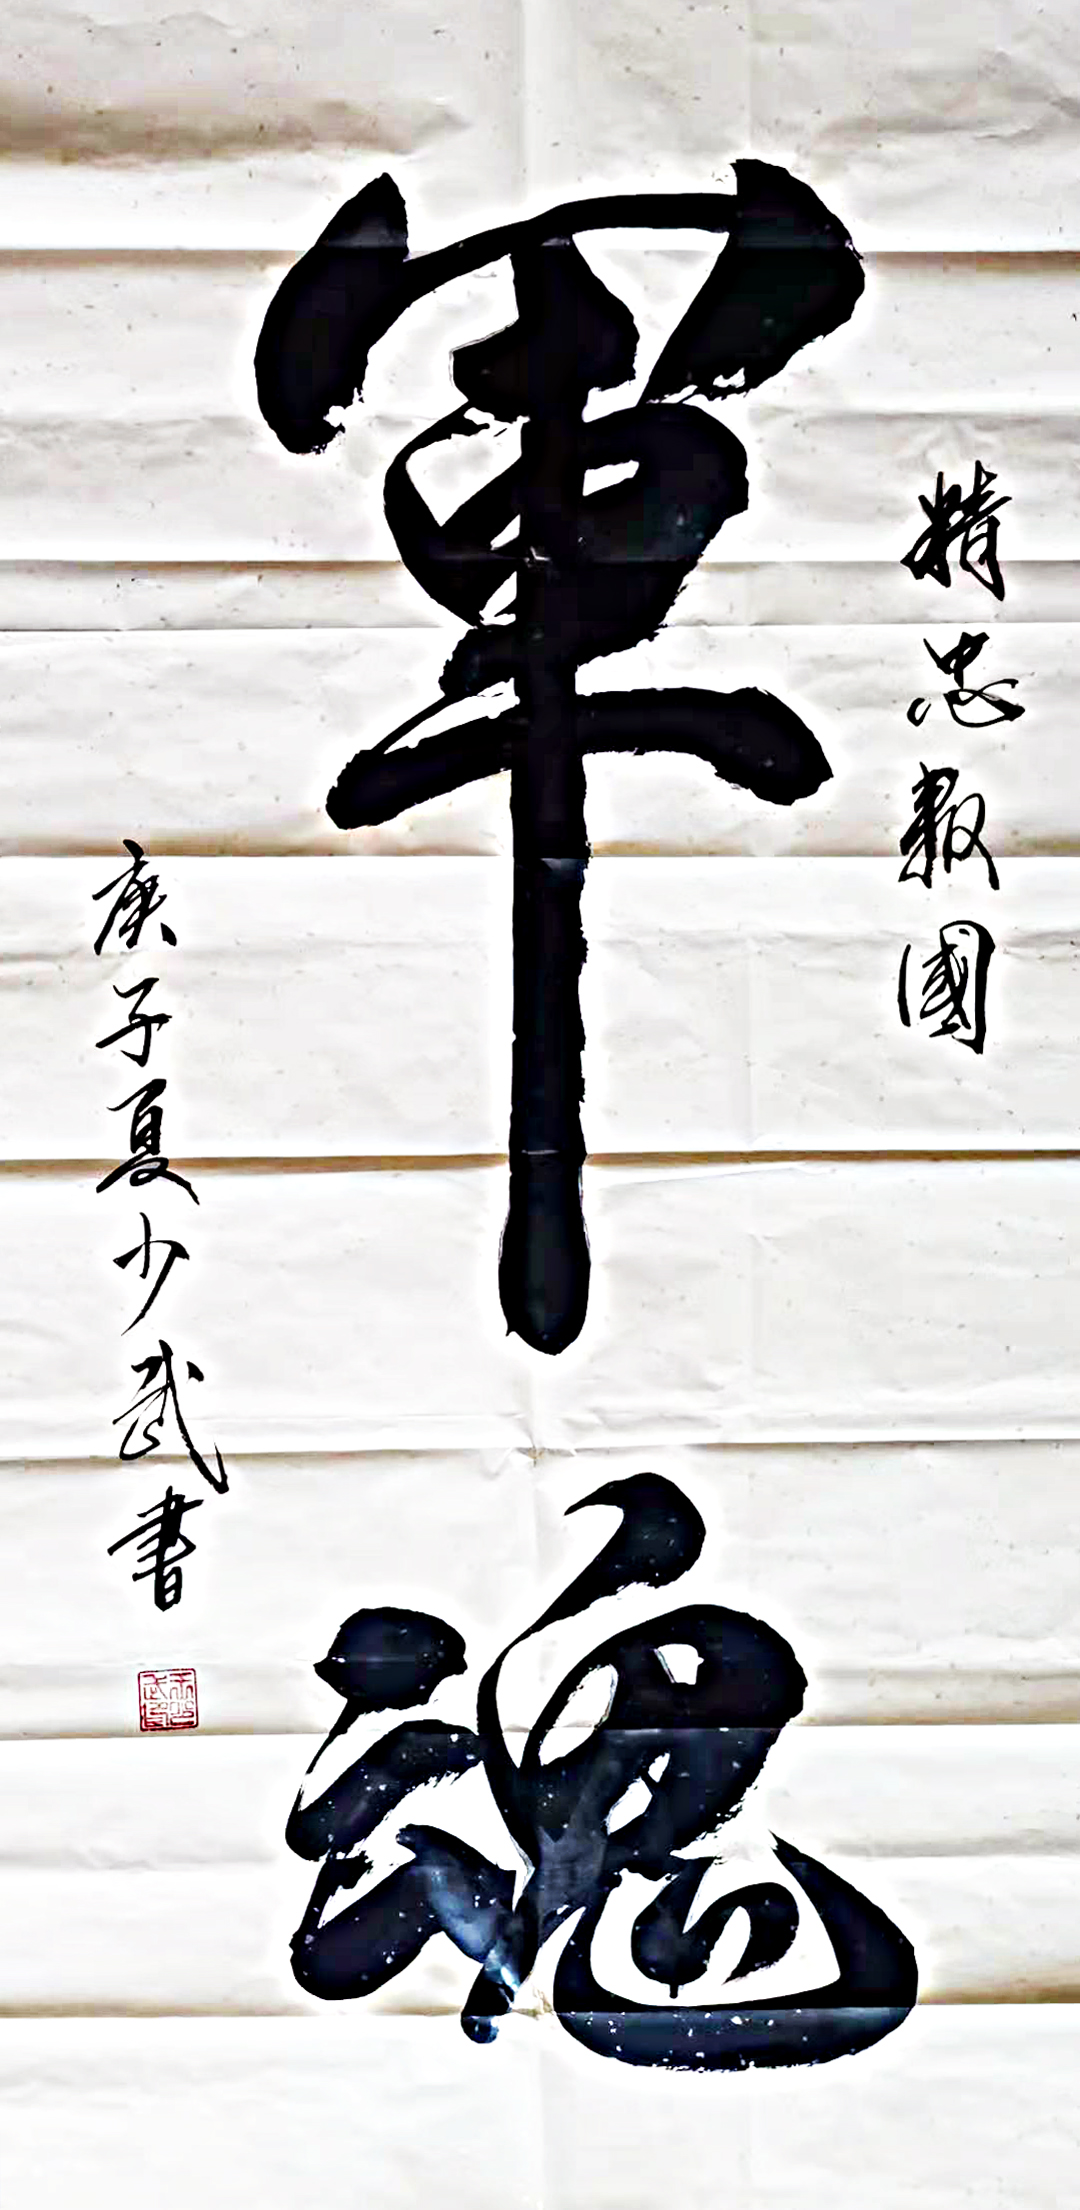 精忠報國
軍魂
庚子夏少武書